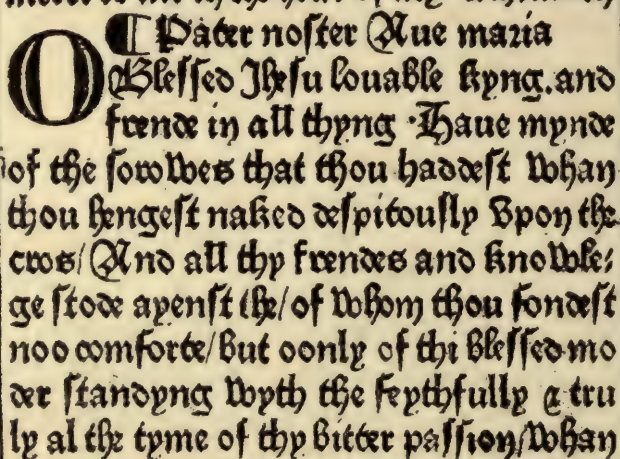 ¶ Pater noster Aue maria
O Blessed Ihesu louable kyng. and
frende in all thyng · Haue mynde
of the sorowes that thou haddest whan
thou hengest naked despitously vpon the
cros/ And all thy frendes and knowle⸗
ge stode ayenst the/ of whom thou fondest
noo comforte/ but oonly of thi blessed mo
der standyng wyth the feythfully & tru
ly al the tyme of thy bitter passion/ whan